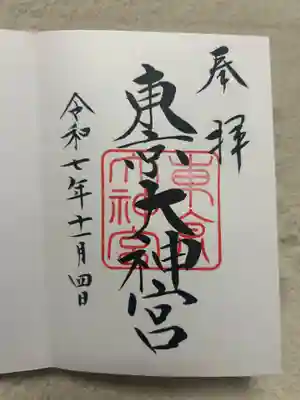 奉拝
東京大神宮
東京大神宮
令和七年十一月四日